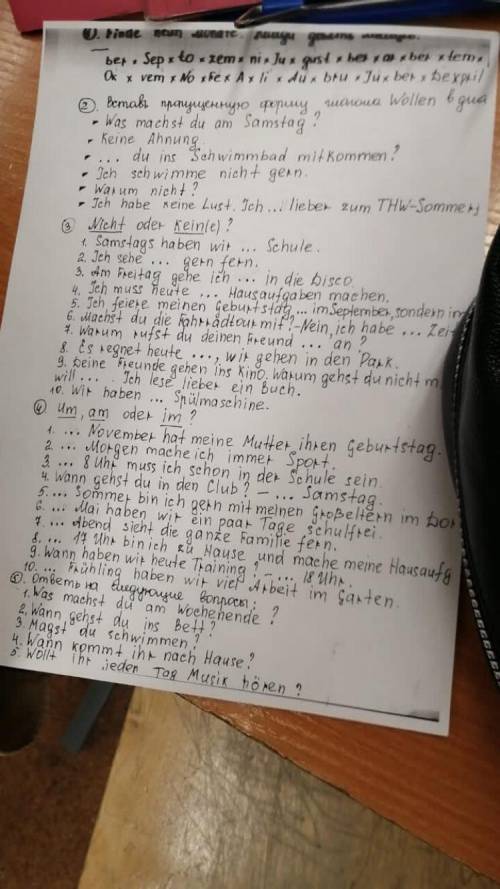 ① Finde neun Monate.
ber × Sep × to × zem × ni × Ju × gust × ber × ar × ber × tem ×
Ok × vem × No × Fe × A × li × Au × bru × Ju × ber × Dexpril
② Вставь пропущенную форму глагола Wollen в диа
- Was machst du am Samstag?
- Keine Ahnung.
- ... du ins Schwimmbad mitkommen?
- Ich schwimme nicht gern.
- Warum nicht?
- Ich habe keine Lust. Ich ... lieber zum THW-Sommerf
③ Nicht oder Kein(e)?
1. Samstags haben wir ... Schule.
2. Ich sehe ... gern fern.
3. Am Freitag gehe ich ... in die Disco.
4. Ich muss heute ... Hausaufgaben machen.
5. Ich feiere meinen Geburtstag ... im September, sondern im
6. Machst du die Fahrradtour mit? - Nein, ich habe ... Zeit
7. Warum rufst du deinen Freund ... an?
8. Es regnet heute ..., wir gehen in den Park.
9. Deine Freunde gehen ins Kino. Warum gehst du nicht m
will ... . Ich lese lieber ein Buch.
10. Wir haben ... Spülmaschine.
④ um, am oder im?
1. ... November hat meine Mutter ihren Geburtstag.
2. ... Morgen mache ich immer Sport.
3. ... 8 Uhr muss ich schon in der Schule sein.
4. Wann gehst du in den Club? - ... Samstag.
5. ... Sommer bin ich gern mit meinen Großeltern im Dor
6. ... Mai haben wir ein paar Tage schulfrei.
7. ... Abend sieht die ganze Familie fern.
8. ... 17 Uhr bin ich zu Hause und mache meine Hausaufg
9. Wann haben wir heute Training? - ... 18 Uhr.
10. ... Frühling haben wir viel Arbeit im Garten.
⑤ Ответь на следующие вопросы:
1. Was machst du am Wochenende?
2. Wann gehst du ins Bett?
3. Magst du schwimmen?
4. Wann kommt ihr nach Hause?
5. Wollt ihr jeden Tag Musik hören?